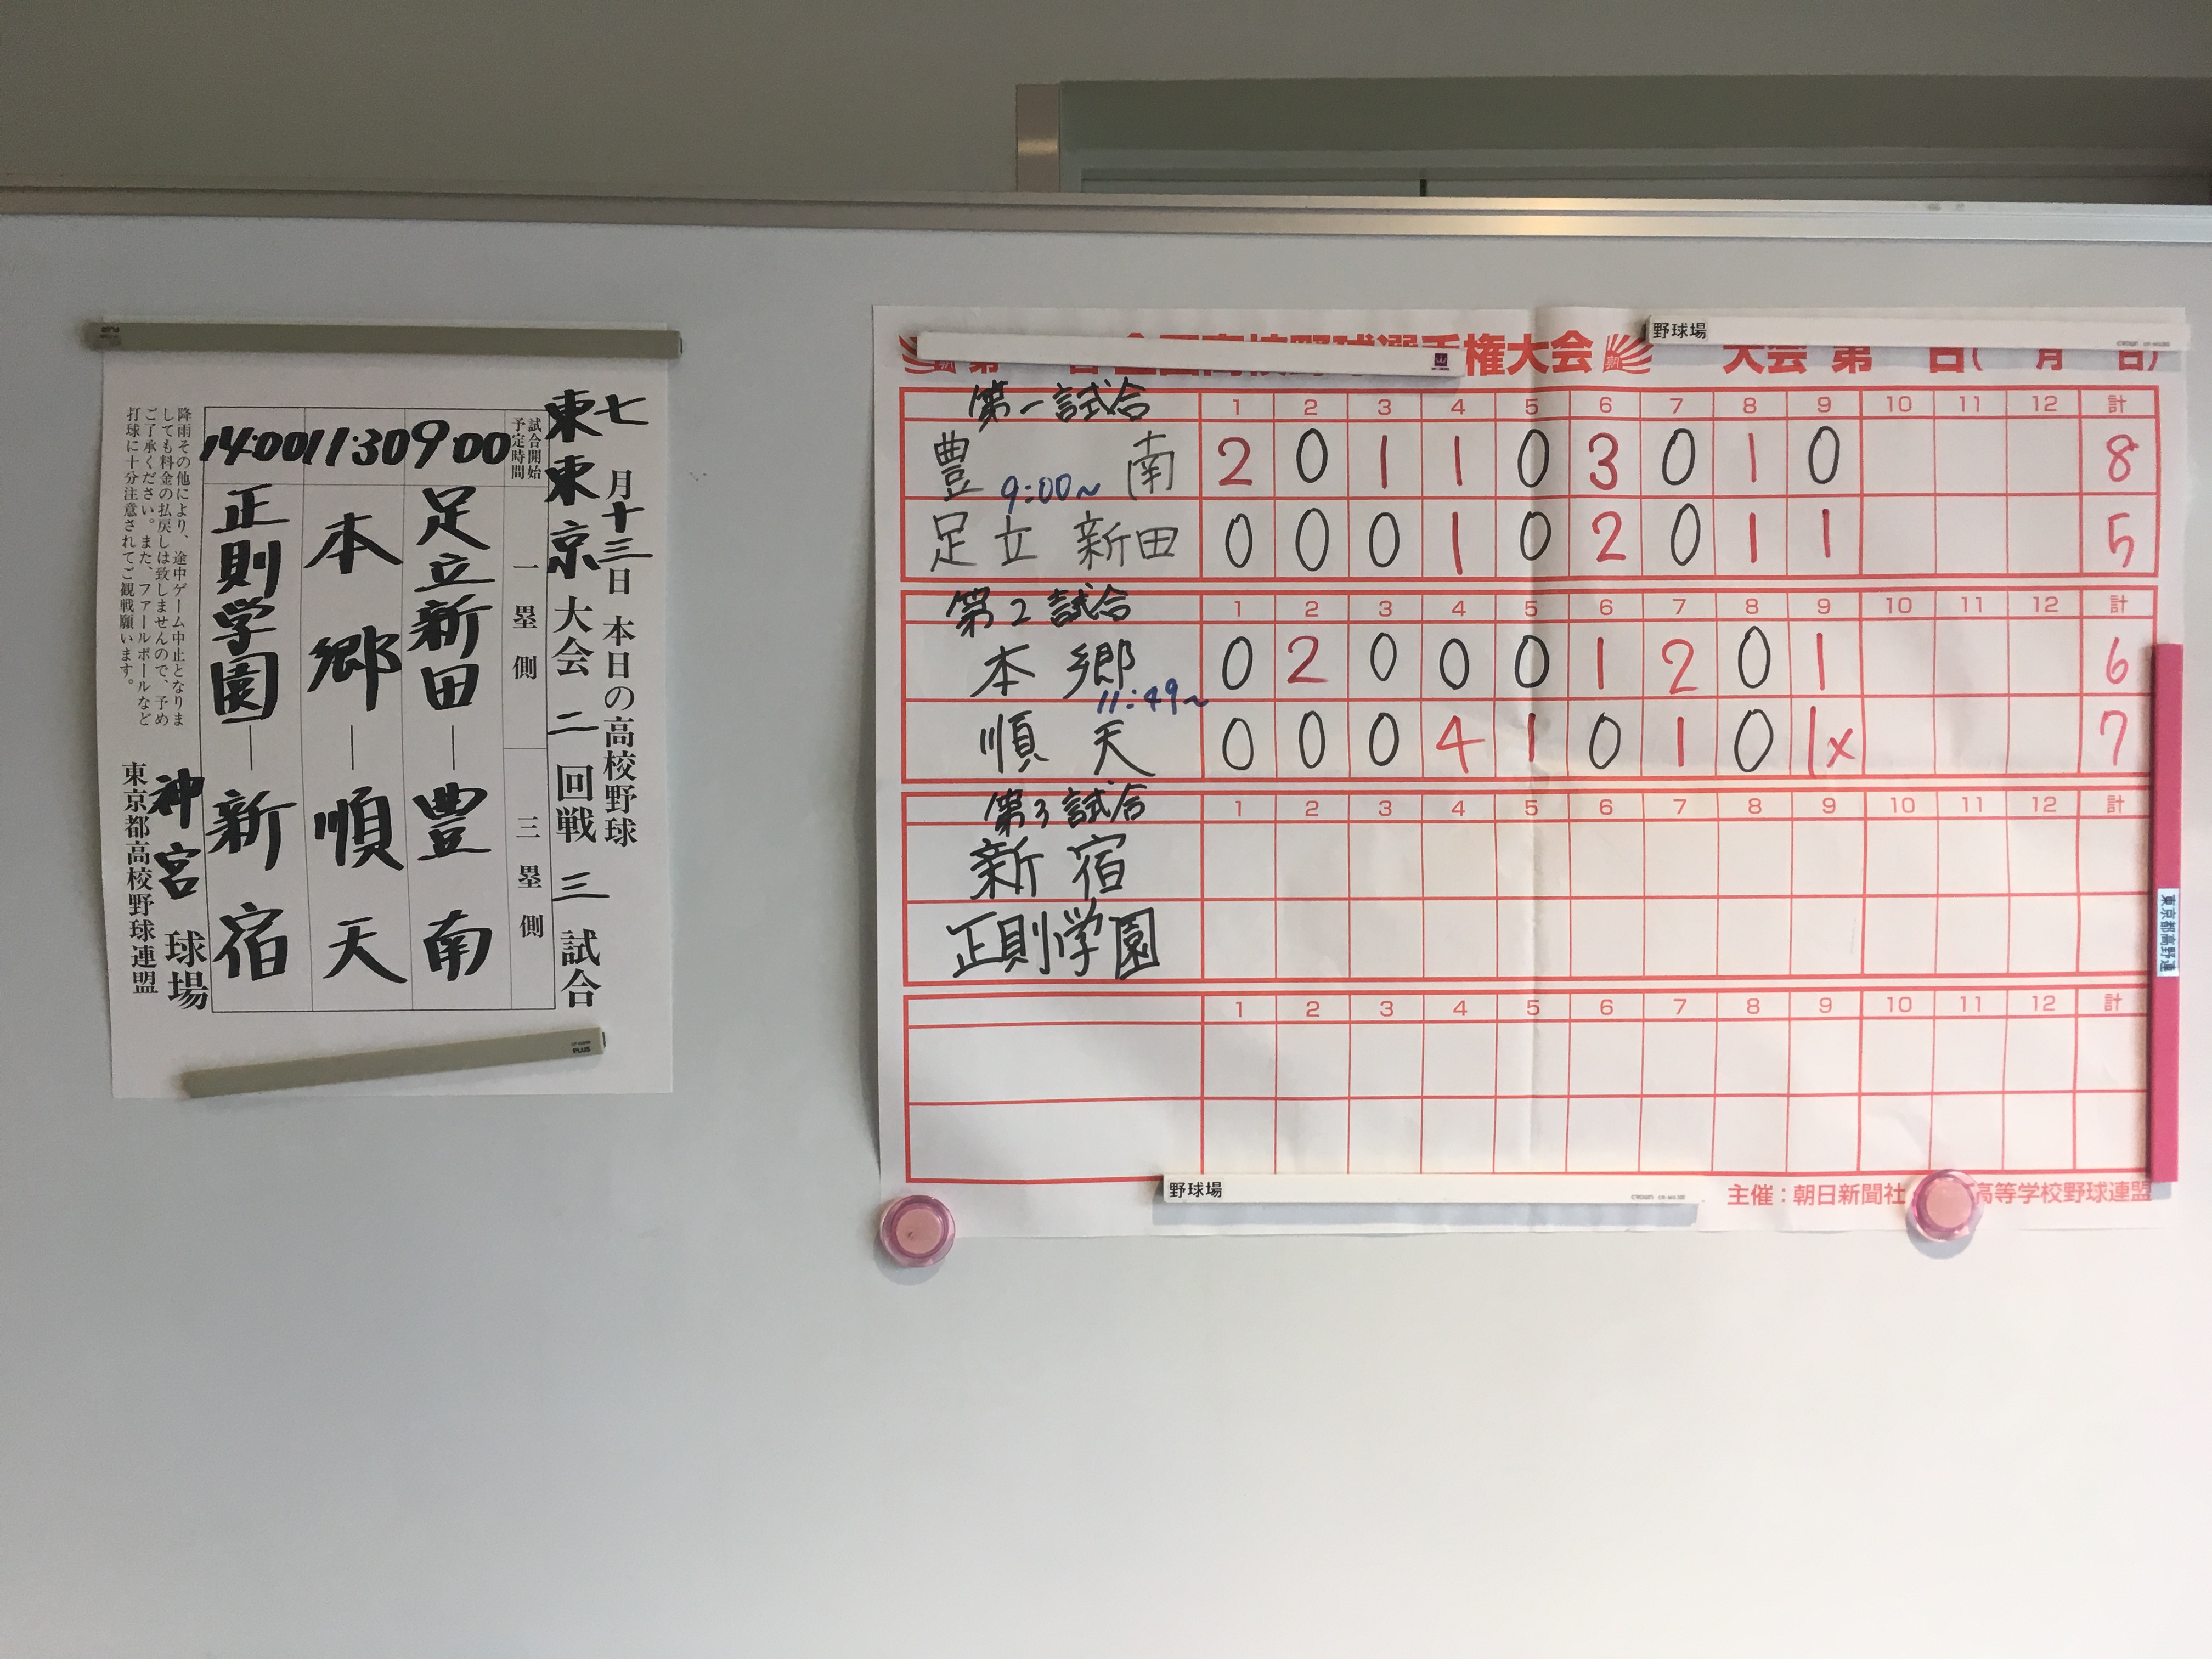 七月十三日 本日の高校野球
東東京大会 二回戦 三試合
試合開始予定時間 一塁側 三塁側
9:00 足立新田―豊南
11:30 本郷―順天
14:00 正則学園―新宿
神宮球場
降雨その他により、途中ゲーム中止となりま
しても料金の払戻しは致しませんので、予め
ご了承ください。また、ファールボールなど
打球に十分注意されてご観戦願います。
東京都高校野球連盟
全国高校野球選手権大会 大会 第 日( 月 日)
野球場
第一試合 1 2 3 4 5 6 7 8 9 10 11 12 計
豊南 2 0 1 1 0 3 0 1 0 8
9:00~
足立新田 0 0 0 1 0 2 0 1 1 5
第2試合 1 2 3 4 5 6 7 8 9 10 11 12 計
本郷 0 2 0 0 0 1 2 0 1 6
11:49~
順天 0 0 0 4 1 0 1 0 1x 7
第3試合 1 2 3 4 5 6 7 8 9 10 11 12 計
新宿
正則学園
1 2 3 4 5 6 7 8 9 10 11 12 計
野球場
主催:朝日新聞社 高等学校野球連盟
東京都高野連
PLUS